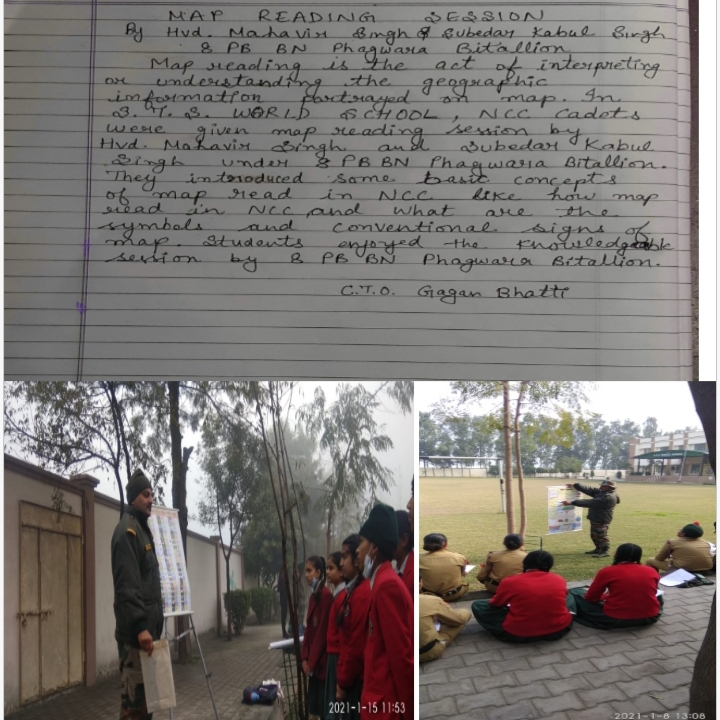 MAP READING SESSION
By Hvd. Mahavir Singh & Subedar Kabul Singh
8 PB BN Phagwara Bitallion
Map reading is the act of interpreting
or understanding the geographic
information portrayed on map. In
S.T.S. WORLD SCHOOL, NCC Cadets
were given map reading session by
Hvd. Mahavir Singh and Subedar Kabul
Singh under 8 PB BN Phagwara Bitallion.
They introduced some basic concepts
of map read in NCC like how map
read in NCC and what are the
symbols and conventional signs of
map. Students enjoyed the
session by 8 PB BN Phagwara Bitallion.
C.T.O. Gagan Bhatti
2021-1-15 11:53
2021-1-8 13:08